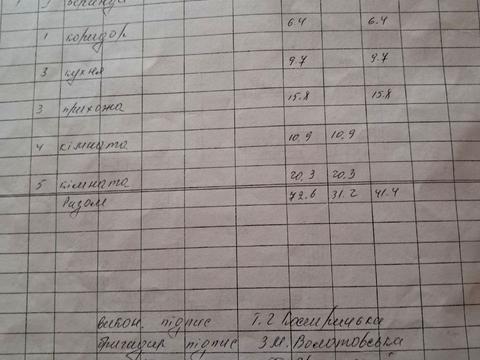 1 коридор 6.4 6.4
3 кухня 9.7 9.7
3 прихожа 15.8 15.8
4 кімната 10,9 10,9
5 кімната 20,3 20,3
Разом 72.6 31.2 41.4
викон. підпис Т.Г
бригадир підпис З.М. Волотовська